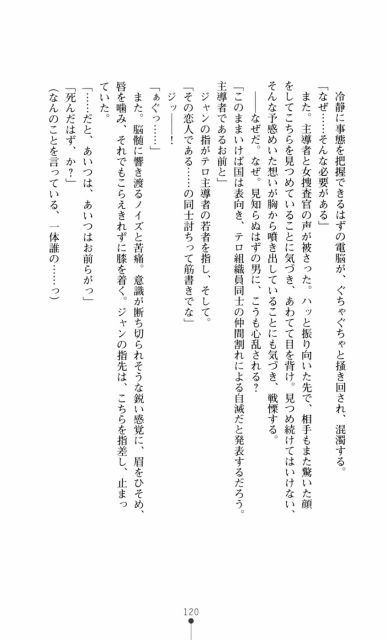 冷静に事態を把握できるはずの電脳が、ぐちゃぐちゃと掻き回され、混濁する。
「なぜ……そんな必要がある」
また。主導者と女捜査官の声が被さった。ハッと振り向いた先で、相手もまた驚いた顔
をしてこちらを見つめていることに気づき、あわてて目を背け。見つめ続けてはいけない、
そんな予感めいた想いが胸から噴き出していることにも気づき、戦慄する。
――なぜだ。なぜ。見知らぬはずの男に、こうも心乱される?
「このままいけば国は表向き、テロ組織員同士の仲間割れによる自滅だと発表するだろう。
主導者であるお前と」
ジャンの指がテロ主導者の若者を指し、そして。
「その恋人である……の同士討ちって筋書きでな」
ジッ――!
「ぁぐっ……」
また。脳髄に響き渡るノイズと苦痛。意識が断ち切られそうな鋭い感覚に、眉をひそめ、
唇を噛み、それでもこらえきれずに膝を着く。ジャンの指先は、こちらを指差し、止まっ
ていた。
「……だと、あいつは、あいつはお前らがっ」
「死んだはず、か?」
(なんのことを言っている、一体誰の…………っ)
120